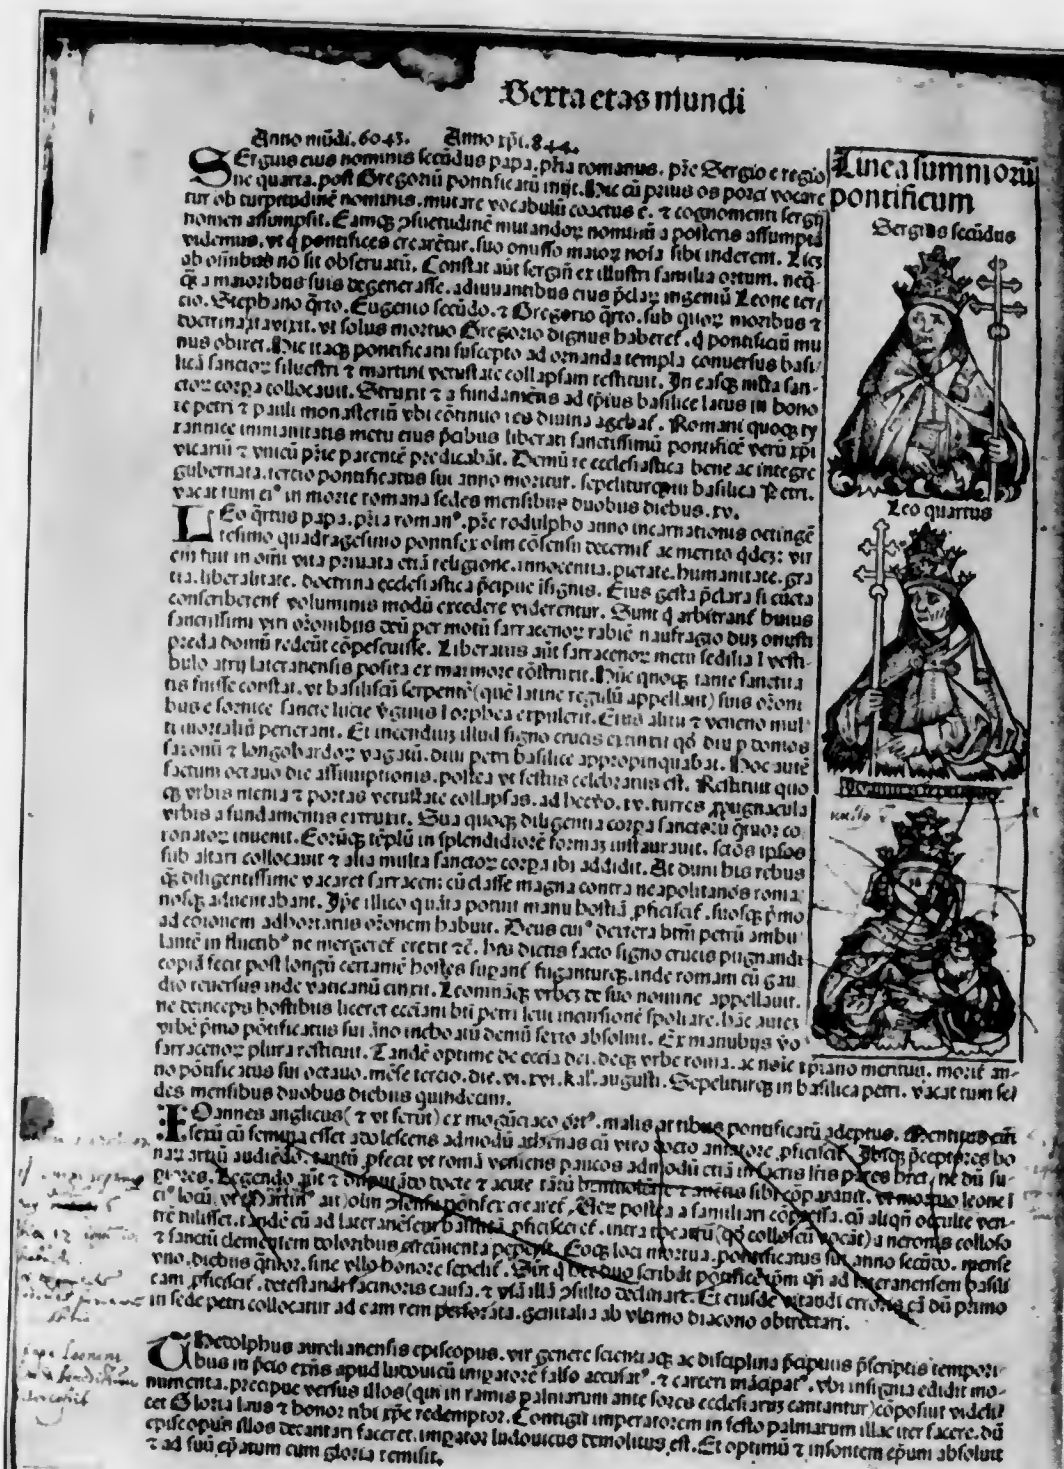 Sexta etas mundi
Anno mūdi. 6043. Anno xp̄i. 844.
SErgius eius nominis secūdus papa. pr̄ia romanus. pr̄e Sergio e regio
ne quarta. post Gregoriū pontificatū inijt. Hic cū prius os porci vocare
tur ob turpitudinē nominis. mutare vocabulū coactus ē. ⁊ cognomentū sergij
nomen assumpsit. Eamqꝫ ꝯsuetudinē mutandoꝝ nominū a posteris assumptā
videmus. vt q̄ pontifices crearētur. suo omisso maioꝝ noīa sibi inderent. Licꝫ
ab omībus nō sit obseruatū. Constat aūt sergiū ex illustri familia ortum. neqꝫ
q̄ꝫ a maioribus suis degenerasse. adiuuantibus eius p̄claꝝ ingeniū Leone ter
cio. Stephano q̄rto. Eugenio secūdo. ⁊ Gregorio q̄rto. sub quoꝝ moribus ⁊
doctrina ita vixit. vt solus mortuo Gregorio dignus haberet᷑. q̄ pontificiū mu
nus obiret. Hic itaqꝫ pontificatu suscepto ad ornanda templa conuersus basi
licā sanctoꝝ siluestri ⁊ martini vetustate collapsam restituit. In easqꝫ
ctoꝝ corpa collocauit. Struxit ⁊ a fundamētis ad ip̄ius basilice latus in hono
re petri ⁊ pauli monasteriū vbi cōtinuo res diuina agebat᷑. Romani quoqꝫ ty
rannice immanitatis metu eius p̄cibus liberati sanctissimū pontificē verū xp̄i
vicariū ⁊ vnicū pr̄ie parentē predicabāt. Demū re ecclesiastica bene ac integre
gubernata. tercio pontificatus sui anno moritur. sepeliturqꝫ in basilica Petri.
vacat tum in morte romana sedes mensibus duobus diebus. xv.
LEo q̄rtus papa. pr̄ia roman⁹. pr̄e rodulpho anno incarnationis octingē
tesimo quadragesimo pontifex oīm cōsensu decernit᷑ ac merito q̄dez: vir
em̄ fuit in om̄i vita priuata etiā religione. innocentia. pietate. humanitate. gra
tia. liberalitate. doctrina ecclesiastica p̄cipue īsignis. Eius gesta p̄clara si cūcta
conscriberent᷑ voluminis modū excedere viderentur. Sunt q̄ arbitrant᷑ huius
sanctissimi viri oronibus deū per motū sarracenoꝝ rabiē naufragio duꝫ onusti
preda domū redeūt cōpescuisse. Liberatus aūt sarracenoꝝ metu sedilia ī vesti
bulo atrij lateranensis posita ex marmore cōstruxit. Hūc quoqꝫ tante sanctita
tis fuisse constat. vt basilisci serpentē (quē latine regulū appellant) suis orōni
bus e fornice sancte lucie v̄ginis ī orphea expulerit. Eius alitu ⁊ veneno mul
ti mortaliū perierant. Et incendiuꝫ illud signo crucis extinxit qđ diu p domos
saxonū ⁊ longobardoꝝ vagatū. diui petri basilice appropinquabat. Hoc autē
factum octauo die assumptionis. postea vt festus celebratus est. Restituit quo
qꝫ vrbis menia ⁊ portas vetustate collapsas. ad hec v̄o. xv. turres ꝓpugnacula
vrbis a fundamentis erexit. Sua quoqꝫ diligentia corpa sanctorū q̄tuor co
ronatoꝝ inuenit. Eorūqꝫ tēplū in splendidiorē formaꝫ instaurauit. sctōs ip̄sos
sub altari collocauit ⁊ alia multa sanctoꝝ corpa ibi addidit. At dum his rebus
q̄ꝫ diligentissime vacaret sarraceni cū classe magna contra neapolitanos roma
nosqꝫ aduentabant. Ip̄e illico quāta potuit manu hostiā ꝓficiscit᷑. suosqꝫ p̄mo
ad cōionem adhortatus orōnem habuit. Deus cui⁹ dextera btm̄ petrū ambu
lantē in fluctib⁹ ne mergeret᷑ erexit ⁊c̄. his dictis facto signo crucis pugnandi
copiā fecit post longū certamē hostes supant᷑ fuganturqꝫ. inde romam cū gau
dio reuersus inde vaticanū cinxit. Leonināqꝫ vrbeꝫ de suo nomine appellauit.
ne deinceps hostibus liceret ecclesiam bti petri leui incursione spoliare. hāc autez
vrbē p̄mo pōtificatus sui āno inchoatū demū sexto absoluit. Ex manubijs v̄o
sarracenoꝝ plura restituit. Tandē optime de eccīa dei. deqꝫ vrbe roma. ac noīe xpiano meritus. morit᷑ an
no pōtificatus sui octauo. mēse tercio. die. vi. xvi. kal᷑. augusti. Sepeliturqꝫ in basilica petri. vacat tum se
des mensibus duobus diebus quindecim.
IOannes anglicus (⁊ vt ferūt) ex mogūciaco ort⁹. malis artibus pontificatū adeptus. Mentitus em̄
sexū cū femina esset adolescens admodū athenas cū viro docto amatore. ꝓficiscit᷑. Ibiqꝫ p̄ceptores bo
naꝝ artiū audiēdo. tantū ꝓfecit vt romā veniens paucos admodū etiā in sacris lr̄is pares hret᷑. ne dū su
piores. Legendo aūt ⁊ disputādo docte ⁊ acute tātū beniuolētie ⁊ auctoritatis sibi cōparauit. vt mortuo leone ī
ei⁹ locū (vt Martin⁹ ait) oīm ꝯsensu pōtifex crearet᷑. Veꝝ postea a familiari cōpressa. cū aliqn̄ occulte ven
trē tulisset. tandē cū ad lateranēsem basilicā ꝓficisceret᷑. intra theatrū (qđ colosseū vocāt) a neronis collosso
⁊ sanctū clementem doloribus circūuenta peperit. Eoqꝫ loci mortua. pontificatus sui anno secūdo. mense
vno. diebus q̄tuor. sine vllo honore sepelit᷑. Sūt q̄ hec duo scribāt pōtificē ip̄m qn̄ ad lateranensem basili
cam ꝓficiscit᷑. detestandi facinoris causa. ⁊ viā illā ꝯsulto declinare. Et eiusdē vitandi erroris cā dū primo
in sede petri collocatur ad eam rem perforata. genitalia ab vltimo diacono obtrectari.
THeodolphus aurelianensis episcopus. vir genere scientiaqꝫ ac disciplina p̄cipuus p̄scriptis tempori
bus in p̄cio exn̄s apud ludouicū imꝑatorē falso accusat⁹. ⁊ carceri mācipat⁹. vbi insignia edidit mo
numenta. precipue versus illos (qui in ramis palmarum ante fores ecclesiaruꝫ cantantur) cōposuit videli
cet Gloria laus ⁊ honor tibi xp̄e redemptor. Contigit imperatorem in festo palmarum illac iter facere. dū
episcopus illos decantari faceret. imꝑator ludouicus demolitus est. Et optimū ⁊ insontem ep̄um absoluit
⁊ ad suū ep̄atum cum gloria remisit.
Linea summorū
pontificum
Sergius secūdus
Leo quartus